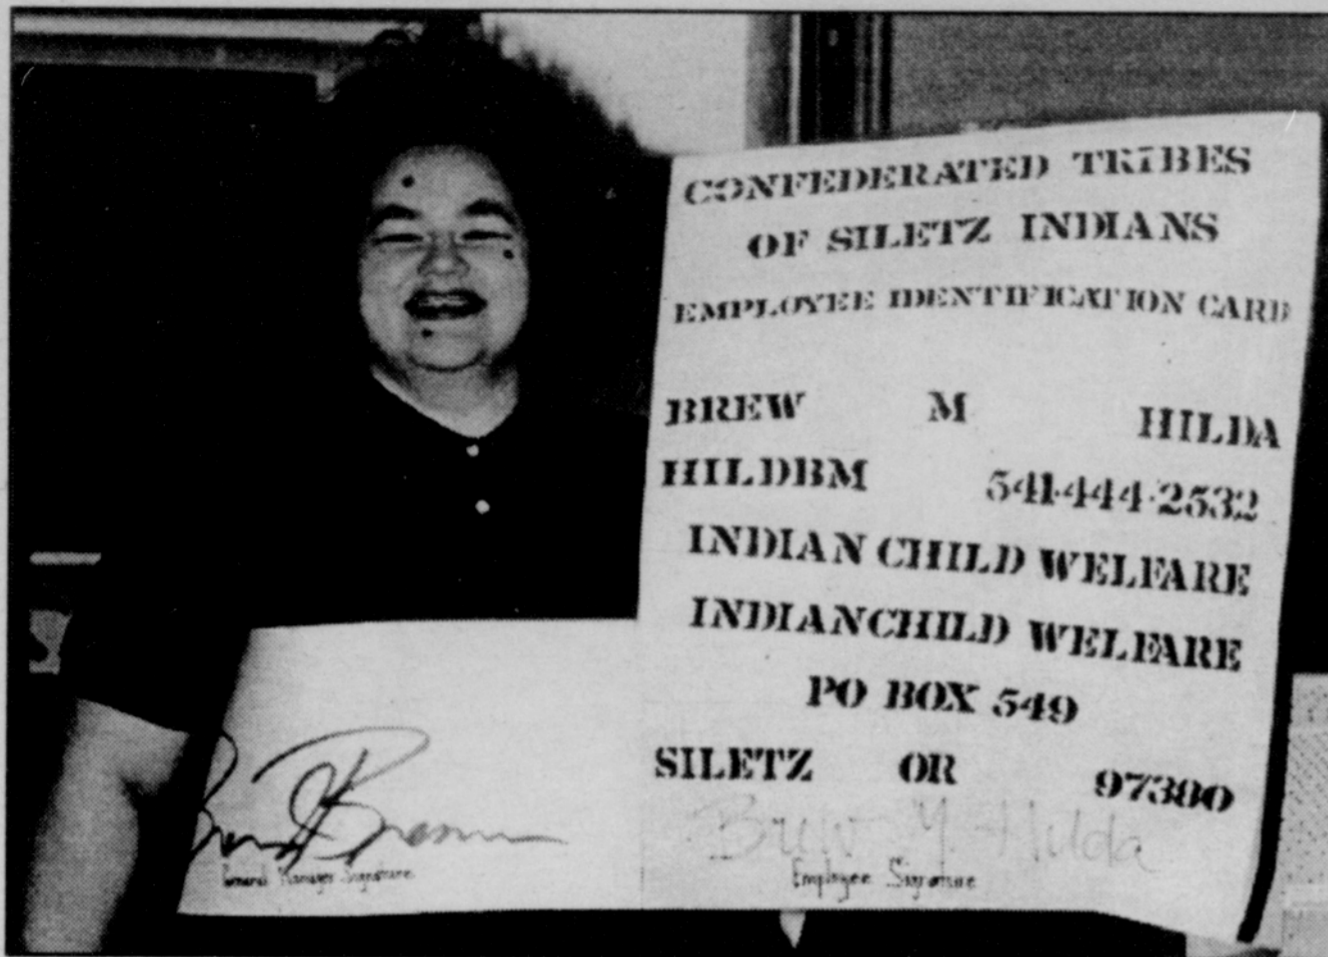 CONFEDERATED TRIBES
OF SILETZ INDIANS
EMPLOYEE IDENTIFICATION CARD
BREW M HILDA
HILDBM 541-444-2532
INDIAN CHILD WELFARE
INDIANCHILD WELFARE
PO BOX 549
SILETZ OR 97380
Brew M Hilda
Employee Signature
Manager Signature